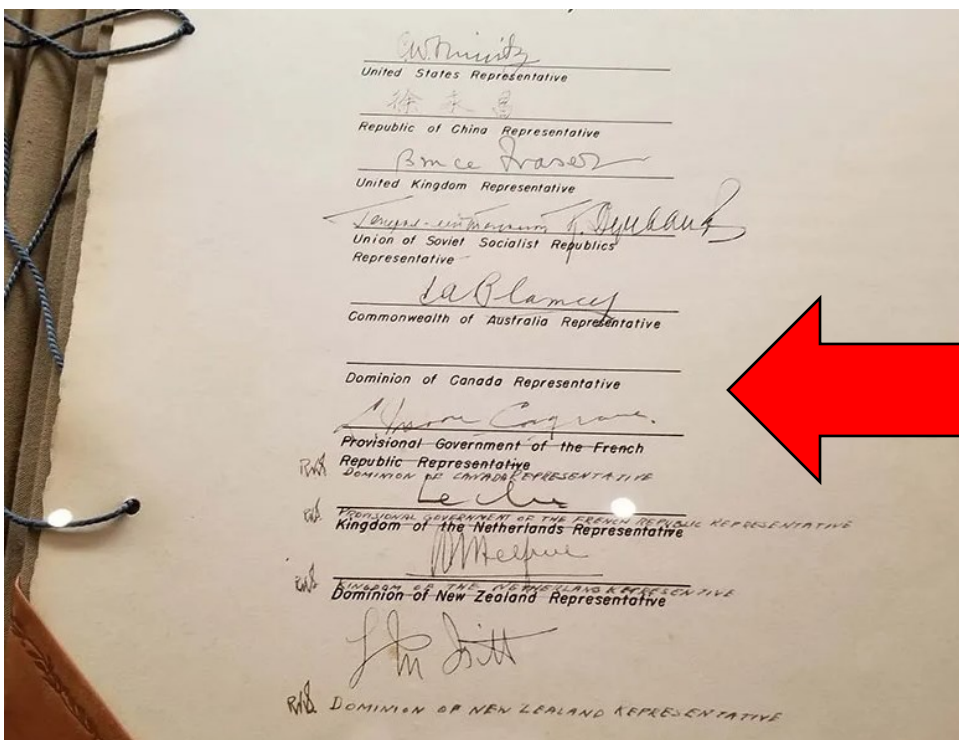 CW Nimitz
United States Representative
徐永昌
Republic of China Representative
Bruce Fraser
United Kingdom Representative
Union of Soviet Socialist Republics
Representative
Blamey
Commonwealth of Australia Representative
Dominion of Canada Representative
Moore Cosgrave
Provisional Government of the French
Republic Representative
RKS DOMINION OF CANADA REPRESENTATIVE
Leclerc
RKS PROVISIONAL GOVERNMENT OF THE FRENCH REPUBLIC REPRESENTATIVE
Kingdom of the Netherlands Representative
Helfrich
RKS KINGDOM OF THE NETHERLAND REPRESENTIVE
Dominion of New Zealand Representative
Isitt
RKS DOMINION OF NEW ZEALAND REPRESENTATIVE